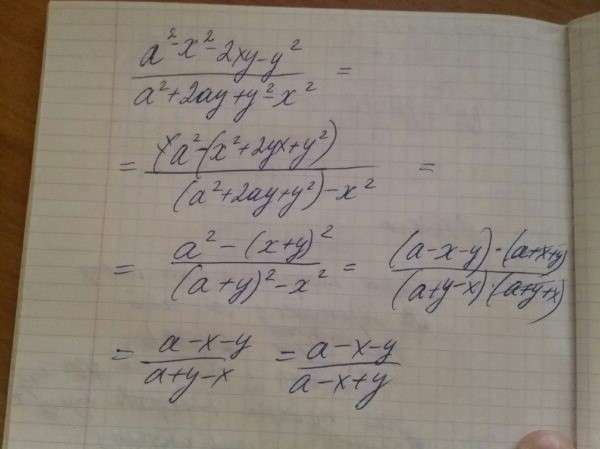 a²-x²-2xy-y² / a²+2ay+y²-x² =
= (a²-(x²+2yx+y²) / (a²+2ay+y²)-x² =
= a²-(x+y)² / (a+y)²-x² = (a-x-y)·(a+x+y) / (a+y-x)·(a+y+x)
= a-x-y / a+y-x = a-x-y / a-x+y